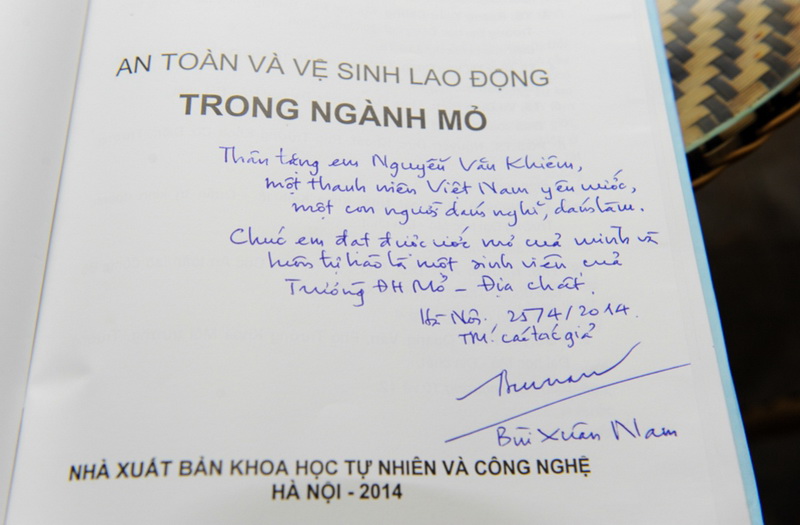 AN TOÀN VÀ VỆ SINH LAO ĐỘNG
TRONG NGÀNH MỎ
Thân tặng em Nguyễn Văn Khiêm,
một thanh niên Việt Nam yêu nước,
một con người dám nghĩ, dám làm.
Chúc em đạt được ước mơ của mình và
luôn tự hào là một sinh viên của
Trường ĐH Mỏ - Địa chất.
Hà Nội, 25/4/2014
TM. các tác giả
Bùi Xuân Nam
NHÀ XUẤT BẢN KHOA HỌC TỰ NHIÊN VÀ CÔNG NGHỆ
HÀ NỘI - 2014